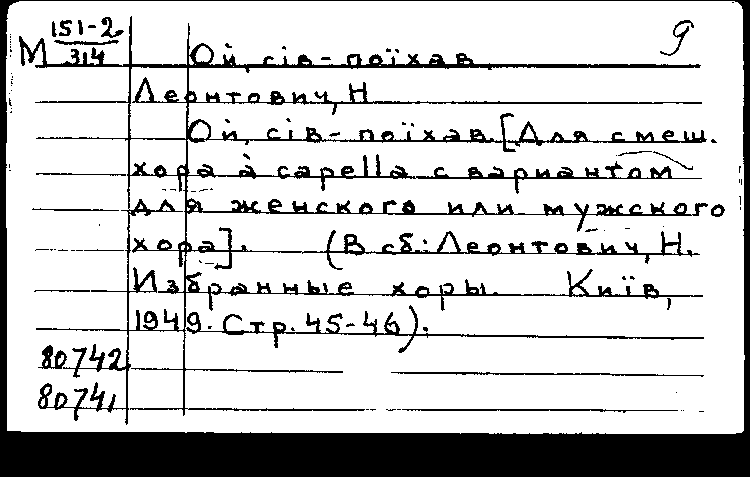 М 151-2/314 Ой, сів-поїхав 9
Леонтович, Н
Ой, сів-поїхав [Для смеш.
хора à capella с вариантом
для женского или мужского
хора]. (В сб.: Леонтович, Н.
Избранные хоры. Київ,
1949. Стр. 45-46).
80742
80741